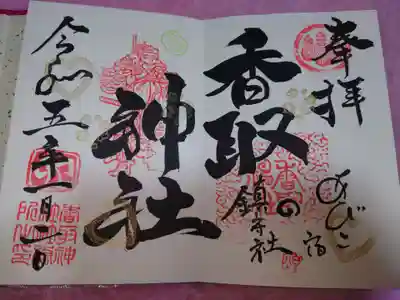 奉拝
あびこ宿
の鎮守社
香取
神社
令和五年一月一日